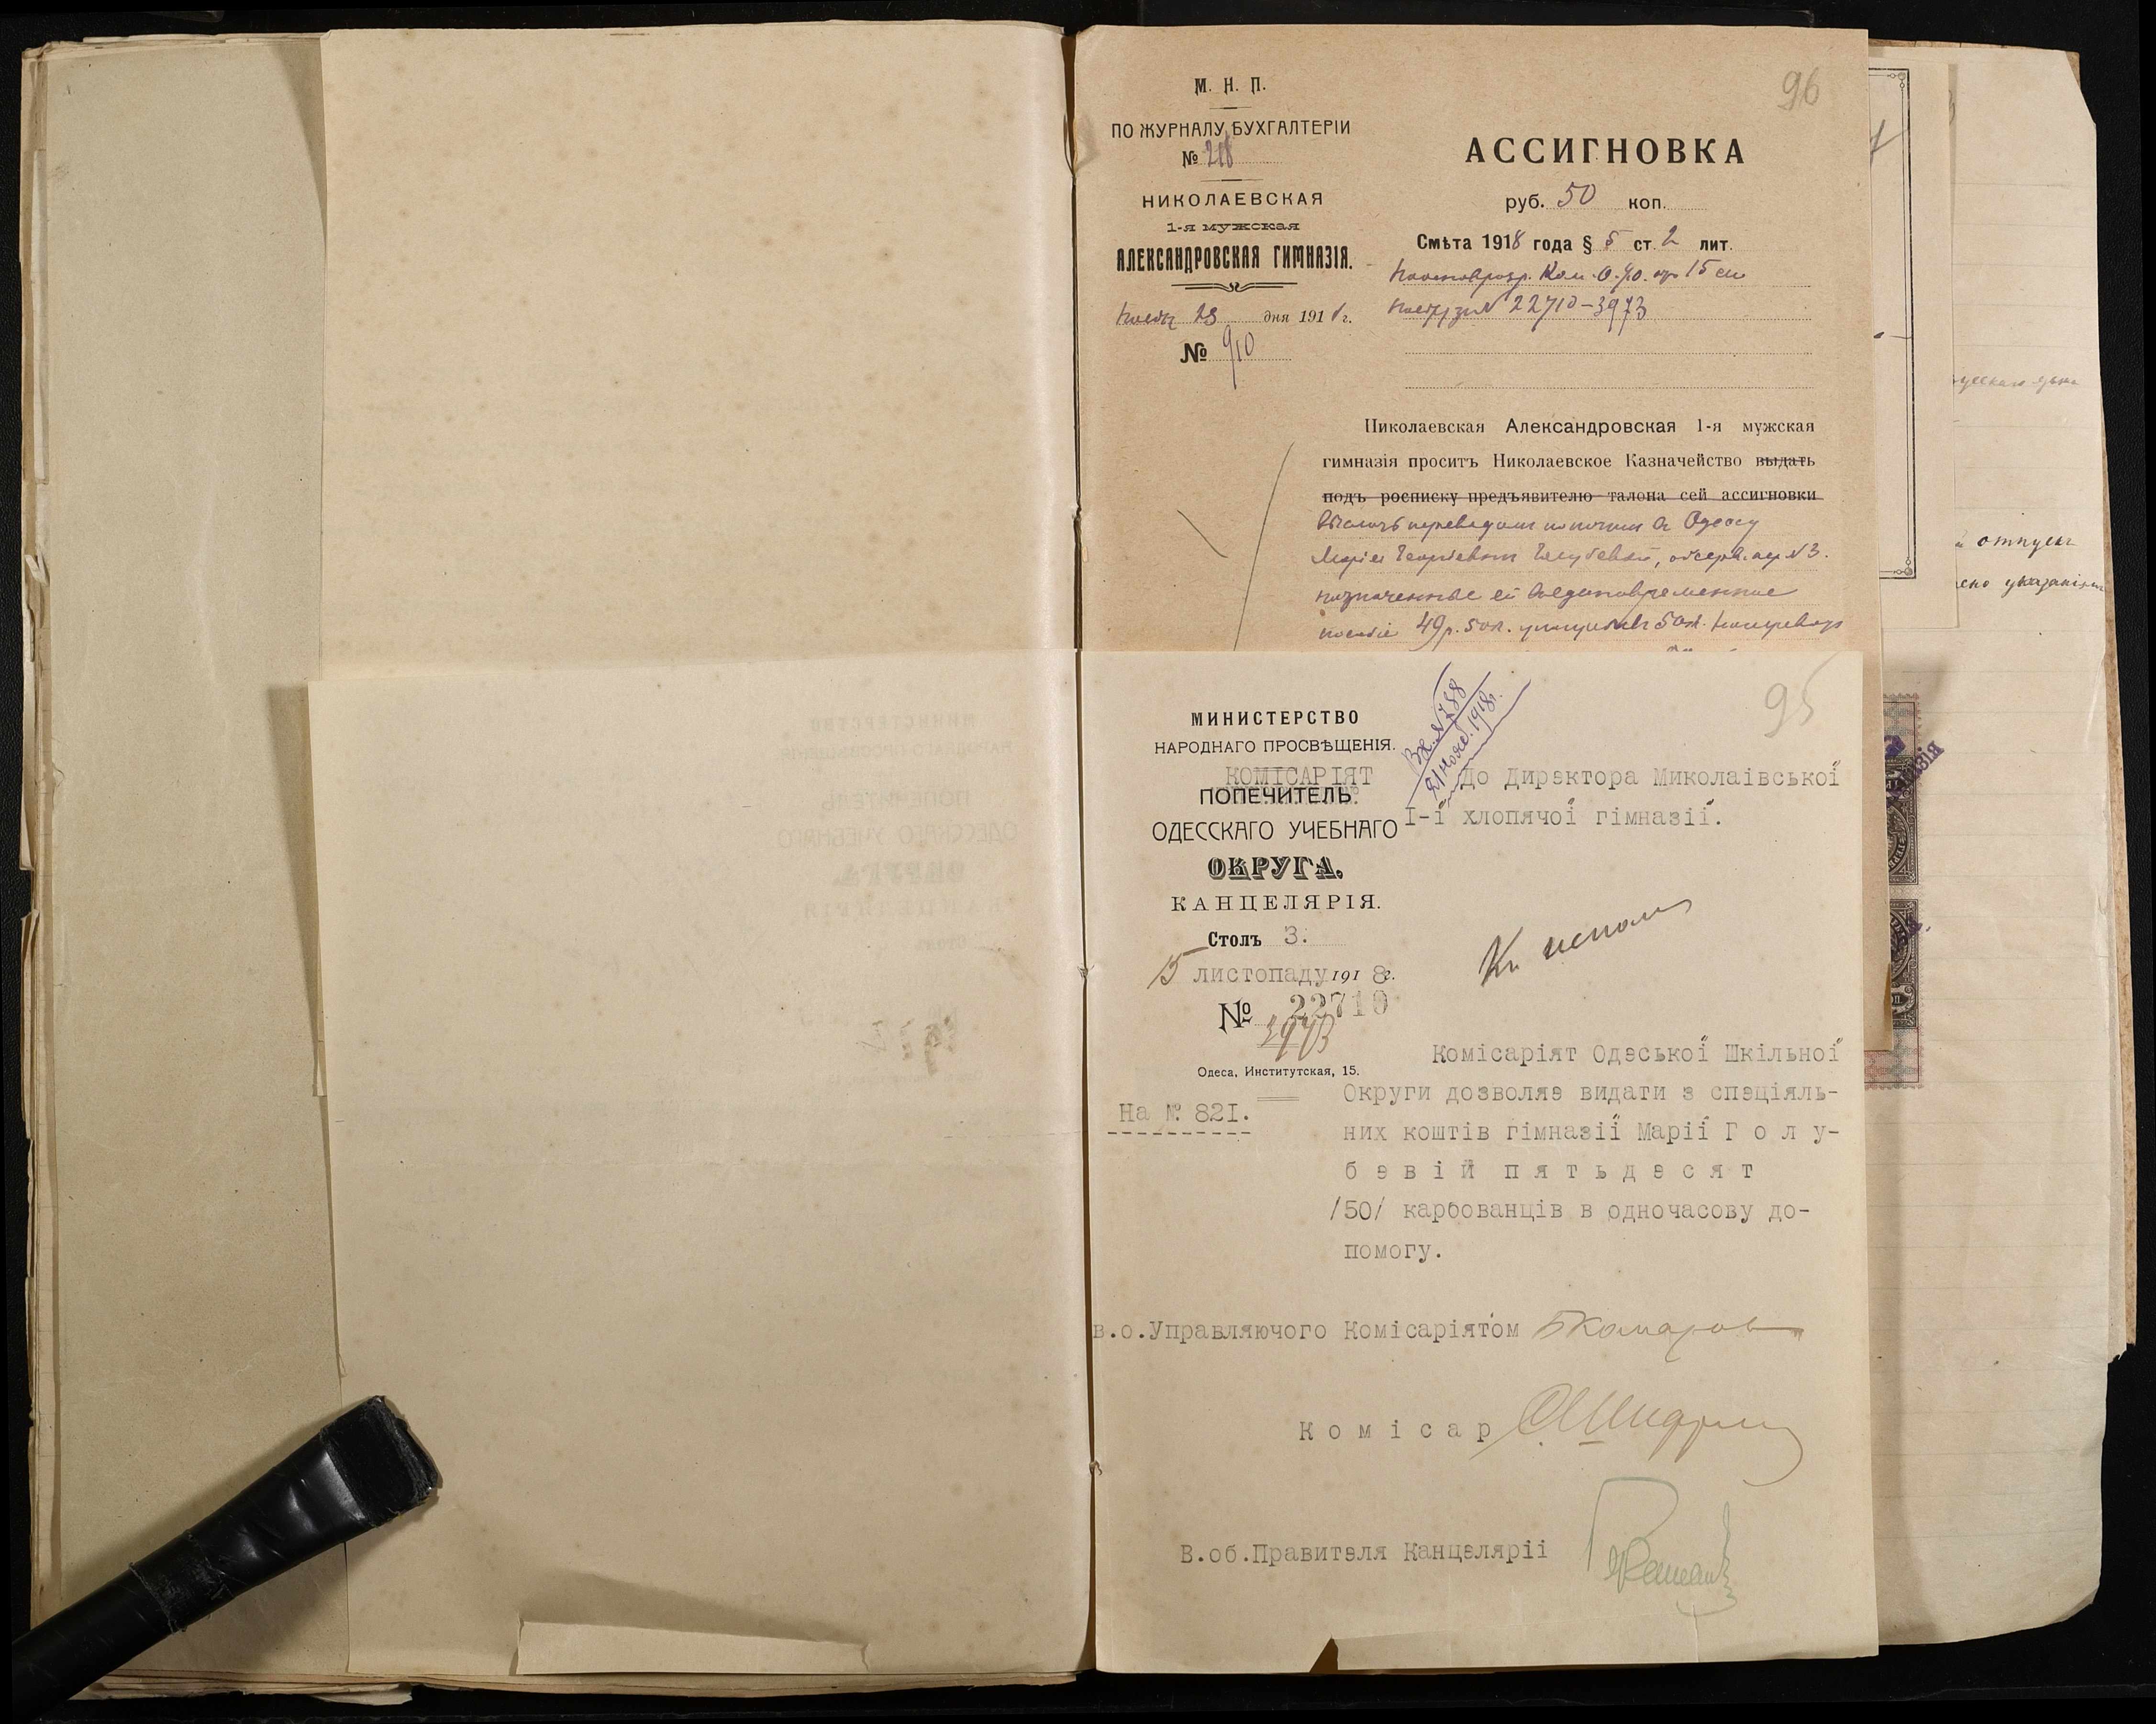 96
М. Н. П.
ПО ЖУРНАЛУ БУХГАЛТЕРІИ
№ 218
НИКОЛАЕВСКАЯ
1-я мужская
АЛЕКСАНДРОВСКАЯ ГИМНАЗІЯ.
23 дня 1918 г.
№ 910
АССИГНОВКА
руб. 50 коп.
Смѣта 1918 года § 5 ст. 2 лит.
15 сего
№ 22710-3973
Николаевская Александровская 1-я мужская
гимназія проситъ Николаевское Казначейство выдать
подъ росписку предъявителю талона сей ассигновки
переводом по почте в Одессу
Маріи Георгіевне Голубевой, обсерв. пер №3.
назначенные ей единовременное
пособіе 49 р. 50 к. 50 к.
95
МИНИСТЕРСТВО
НАРОДНАГО ПРОСВѢЩЕНІЯ.
КОМІСАРІЯТ
ПОПЕЧИТЕЛЬ
ОДЕССКАГО УЧЕБНАГО
ОКРУГА.
КАНЦЕЛЯРІЯ.
Столъ 3.
15 листопаду 1918 г.
№ 22710
3973
Одеса, Институтская, 15.
На № 821.
Вх. № 788
21 нояб. 1918 г.
До Директора Миколаівської
I-ї хлопячої гімназії.
К исполн
Комісаріят Одеської Шкільної
Округи дозволяє видати з спеціяль-
них коштів гімназії Марії Г о л у-
б е в і й п я т ь д е с я т
/50/ карбованців в одночасову до-
помогу.
в.о.Управляючого Комісаріятом БКомаров
К о м і с а р
В.об.Правителя Канцелярії
отпуск
указанія